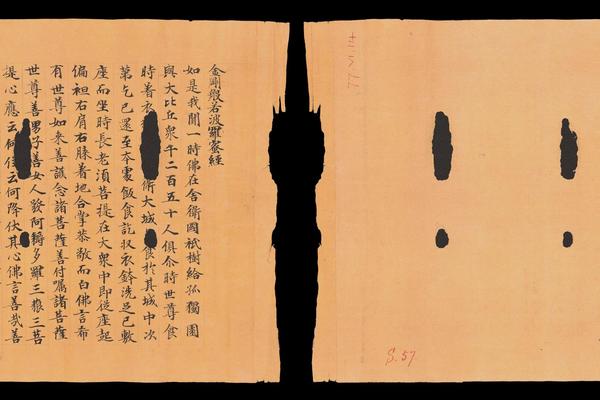 金剛般若波羅蜜經
如是我聞一時佛在舍衛國祇樹給孤獨園
與大比丘衆千二百五十人俱尒時世尊食
時著衣衛大城食於其城中次
第乞已還至本處飯食訖収衣鉢洗足已敷
座而坐時長老須菩提在大衆中即從座起
偏袒右肩右膝著地合掌恭敬而白佛言希
有世尊如来善護念諸菩薩善付囑諸菩薩
世尊善男子善女人發阿耨多羅三藐三菩
提心應云何住云何降伏其心佛言善哉善
S. 57